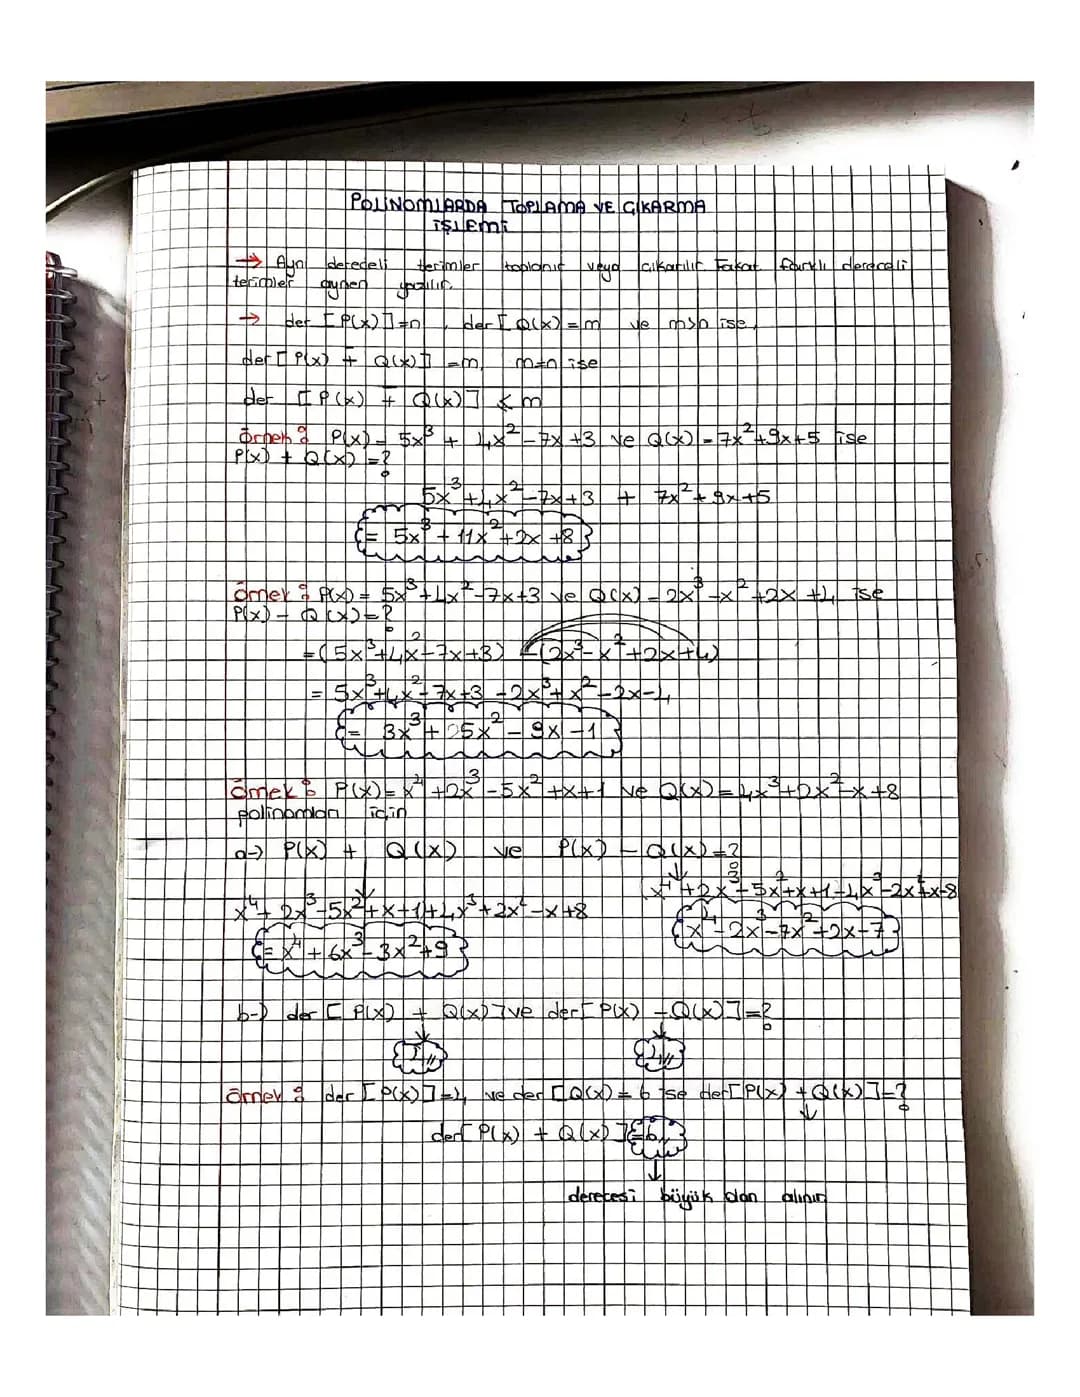 POLİNOMLARDA TOPLAMA VE ÇIKARMA
İŞLEMİ
→ Aynı dereceli terimler toplanır veya çıkarılır. Fakat farklı dereceli
terimler aynen yazılır.
→ der [P(x)]=n, der [Q(x)=m ve m>n ise,
der [P(x) ∓ Q(x)] =m, m=n ise
der [P(x) ∓ Q(x)] ≤ m
Örnek: P(x) = 5x³ + 4x² -7x +3 ve Q(x) = 7x²+9x+5 ise
P(x) + Q(x) =?
5x³+4x²-7x+3 + 7x²+9x+5
= 5x³ + 11x² +2x +8
Örnek: P(x) = 5x³+4x²-7x+3 ve Q(x) = 2x³-x²+2x +4 ise
P(x) - Q(x)=?
=(5x³+4x²-7x+3) -(2x³-x²+2x+4)
= 5x³+4x²-7x+3 -2x³+x²-2x-4
= 3x³+ 5x² - 9x -1
Örnek: P(x)= x⁴ +2x³ -5x² +x+1 ve Q(x)=4x³+2x²-x+8
polinomları için
a-) P(x) + Q(x) ve P(x) - Q(x)=?
x⁴+2x³-5x²+x+1-4x³-2x²+x-8
x⁴+ 2x³-5x²+x+1+4x³+2x²-x+8
x⁴-2x³-7x²+2x-7
= x⁴+6x³-3x²+9
b-) der [P(x) + Q(x)] ve der[P(x) -Q(x)]=?
4,, 4,,
Örnek: der [P(x)]=4 ve der [Q(x)=6 ise der[P(x) +Q(x)]=?
der[P(x) + Q(x)]=6,,
derecesi büyük olan alınır